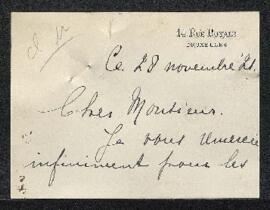 14 Rue Royale
Bruxelles
Ce 28 novembre 21.
Cher Monsieur.
Je vous remercie
infiniment pour les